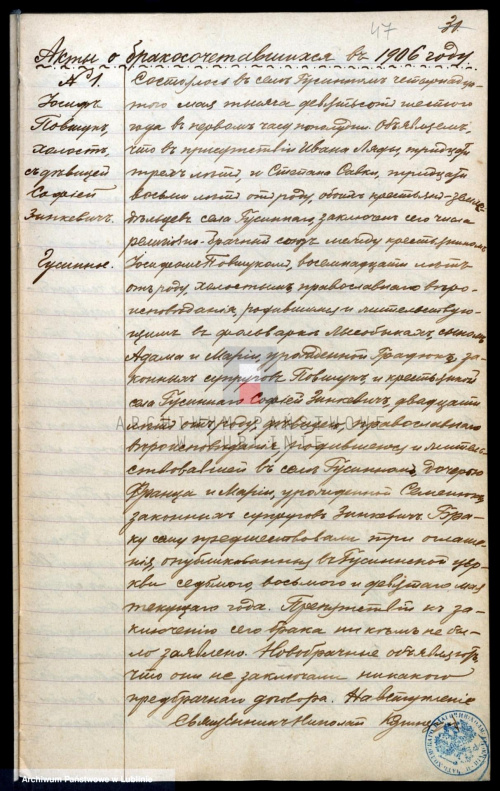 47 31
Акты о бракосочетавшихся въ 1906 году
№ 1.
Іосифъ
Повшукъ,
холостъ,
съ дѣвицей
Софіей
Зинкевичъ.
Гусинное.
Состоялось въ селѣ Гусинномъ четырнадца-
того мая тысяча девятьсотъ шестого
года въ первомъ часу пополудни. Объявляемъ,
что въ присутствіи Ивана Ляды, тридцати
трехъ лѣтъ, и Степана Савки, тридцати
восьми лѣтъ отъ роду, обоихъ крестьянъ-земле-
дѣльцевъ села Гусиннаго, заключенъ сего числа
религіозно-брачный союзъ между крестьяниномъ
Іосифомъ Повшукомъ, восемнадцати лѣтъ
отъ роду, холостымъ, православнаго вѣро-
исповѣданія, родившимся и жительствую-
щимъ въ фольваркѣ сыномъ
Адама и Маріи, урожденной за-
конныхъ супруговъ Повшукъ, и крестьянкой
села Гусиннаго Софіей Зинкевичъ, двадцати
лѣтъ отъ роду, дѣвицей, православнаго
вѣроисповѣданія, родившеюся и житель-
ствовавшей въ селѣ Гусинномъ, дочерью
Франца и Маріи, урожденной
законныхъ супруговъ Зинкевичъ. Бра-
ку сему предшествовали три оглаше-
нія, опубликованныя въ Гусиннской цер-
кви седьмого, восьмого и девятаго мая
текущаго года. Препятствій къ за-
ключенію сего брака ни кѣмъ не бы-
ло заявлено. Новобрачные объявляютъ,
что они не заключали никакого
предбрачнаго договора. На вступленіе
Священникъ Николай
ARCHIWUM PAŃSTWOWE
W LUBLINIE
Archiwum Państwowe w Lublinie